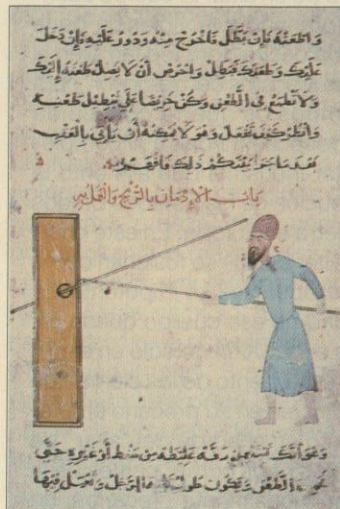 واطعنه فإن بطّل فاخرج منه ودور عليه وإن دخل
عليك وطعنك فبطّل واحرص أن لا يصل طعنه إليك
ولا تطمع في الطعن وكن حريصا على تبطيل طعنه
وانظر كيف تفعل وهو لا يمكنه أن يأتي بالعقب
بعد ما جرا بيدكم ذلك فافهم
باب الإدمان بالرمح والعمل به
وهو أنك تعمل رقه غليظه من شط أو غيره حتى
الطعن ويكون طول الرجل وتعمل فيها